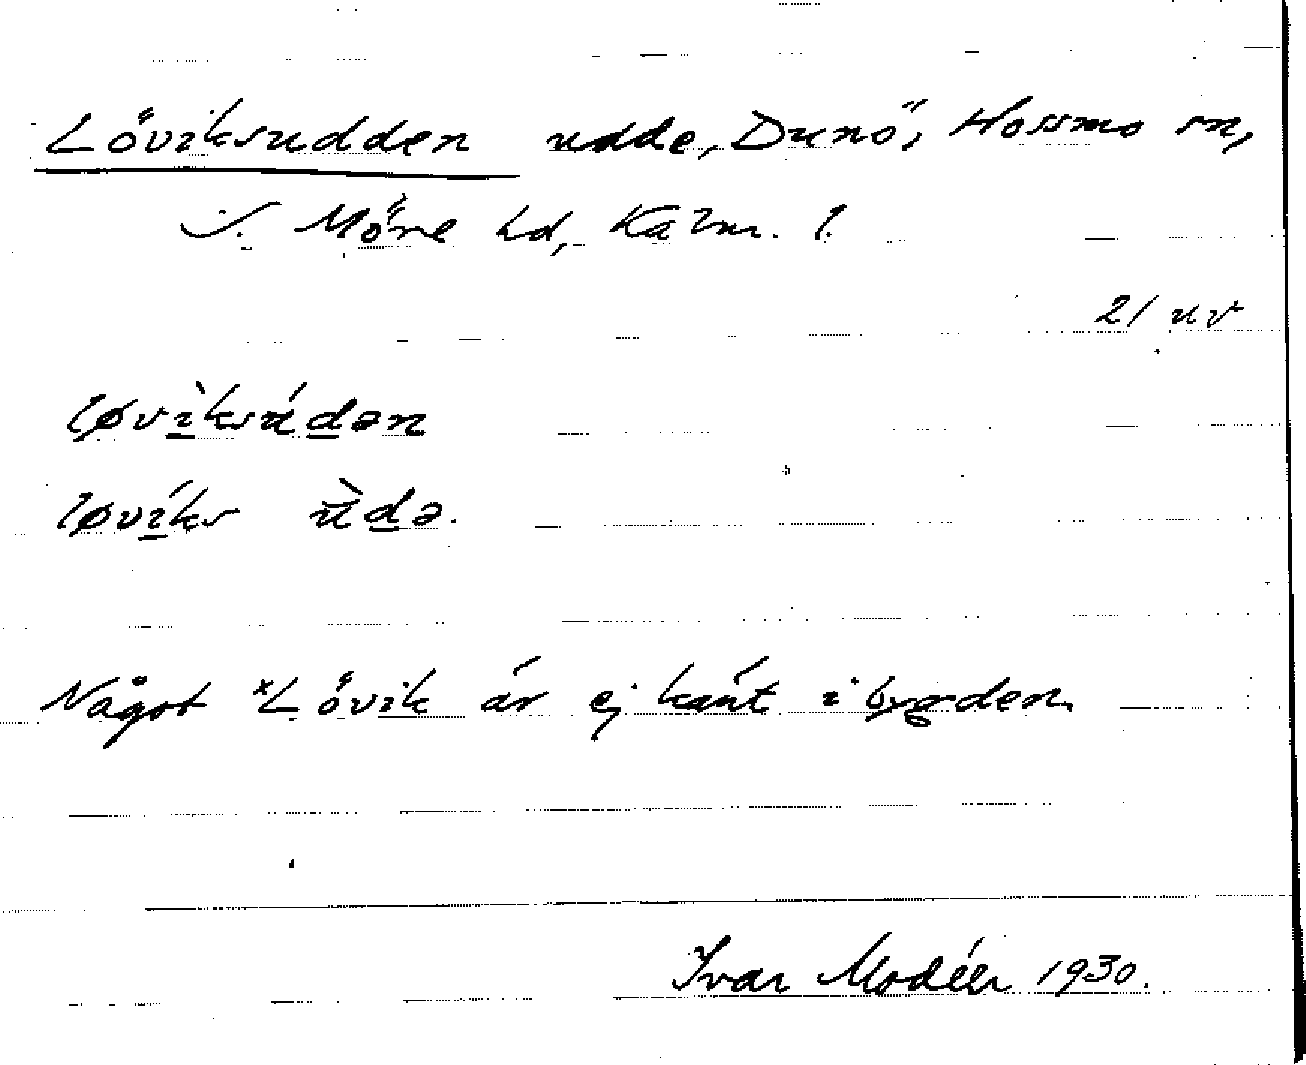 Löviksudden udde, Dunö, Hossmo sn,
S. Möre hd, Kalm. l.
21 nv
løvìksúdən
løvíks ùdə.
Något *Lövik är ej känt i bygden.
Ivar Modéer 1930.